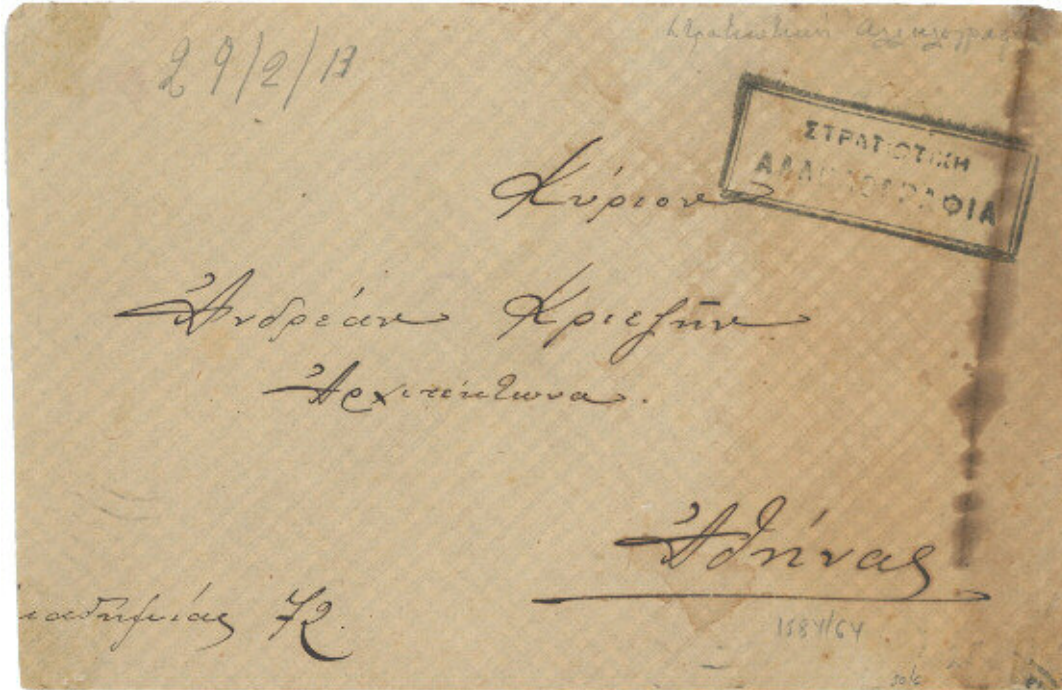 29/2/13
Στρατιωτική Αλληλογραφ
ΣΤΡΑΤΙΩΤΙΚΗ
ΑΛΛΗΛΟΓΡΑΦΙΑ
Κύριον
Ἀνδρέαν Κριεζῆν
Ἀρχιτέκτωνα.
Ἀθήνας
καδημίας 72.
1384/64